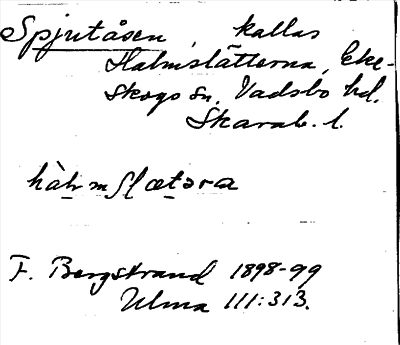 Spjutåsen, kallas
Halmslätterna, Eke-
skogs sn, Vadsbo hd.
Skarab. l.
F. Bergstrand 1898-99
Ulma 111:313.